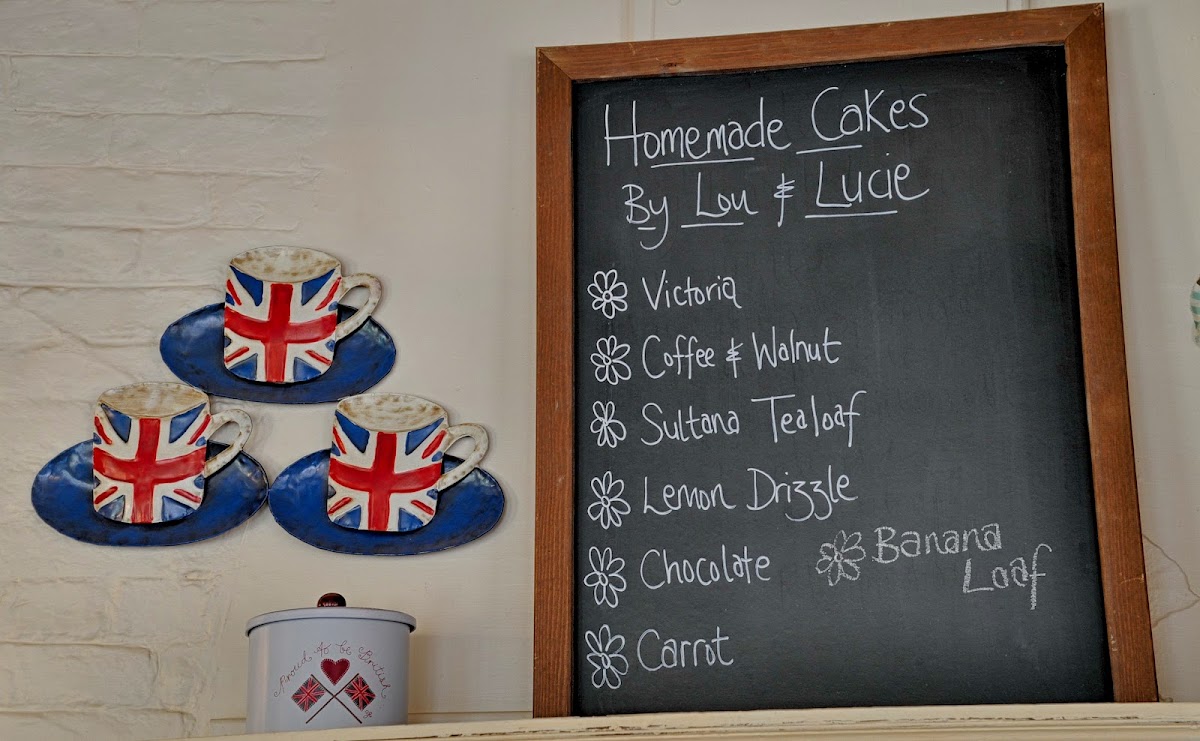 Homemade Cakes
By Lou & Lucie
Victoria
Coffee & Walnut
Sultana Tealoaf
Lemon Drizzle
Chocolate
Banana
Loaf
Carrot
Proud to be British